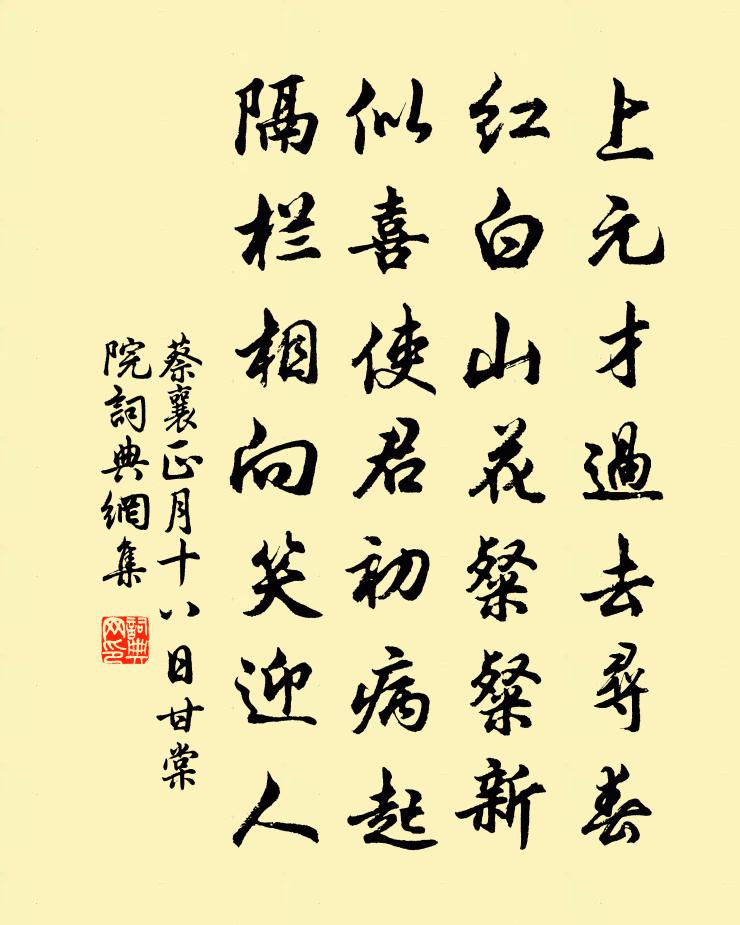 上元才過去尋春
红白山花粲粲新
似喜使君初病起
隔栏相向笑迎人
蔡襄正月十八日甘棠
院詞典網集
詞典网印